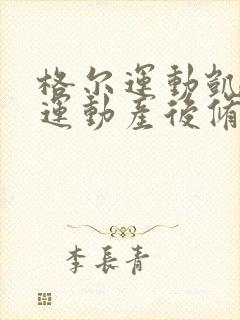 格尔運動凱
運動産後脩
李長青